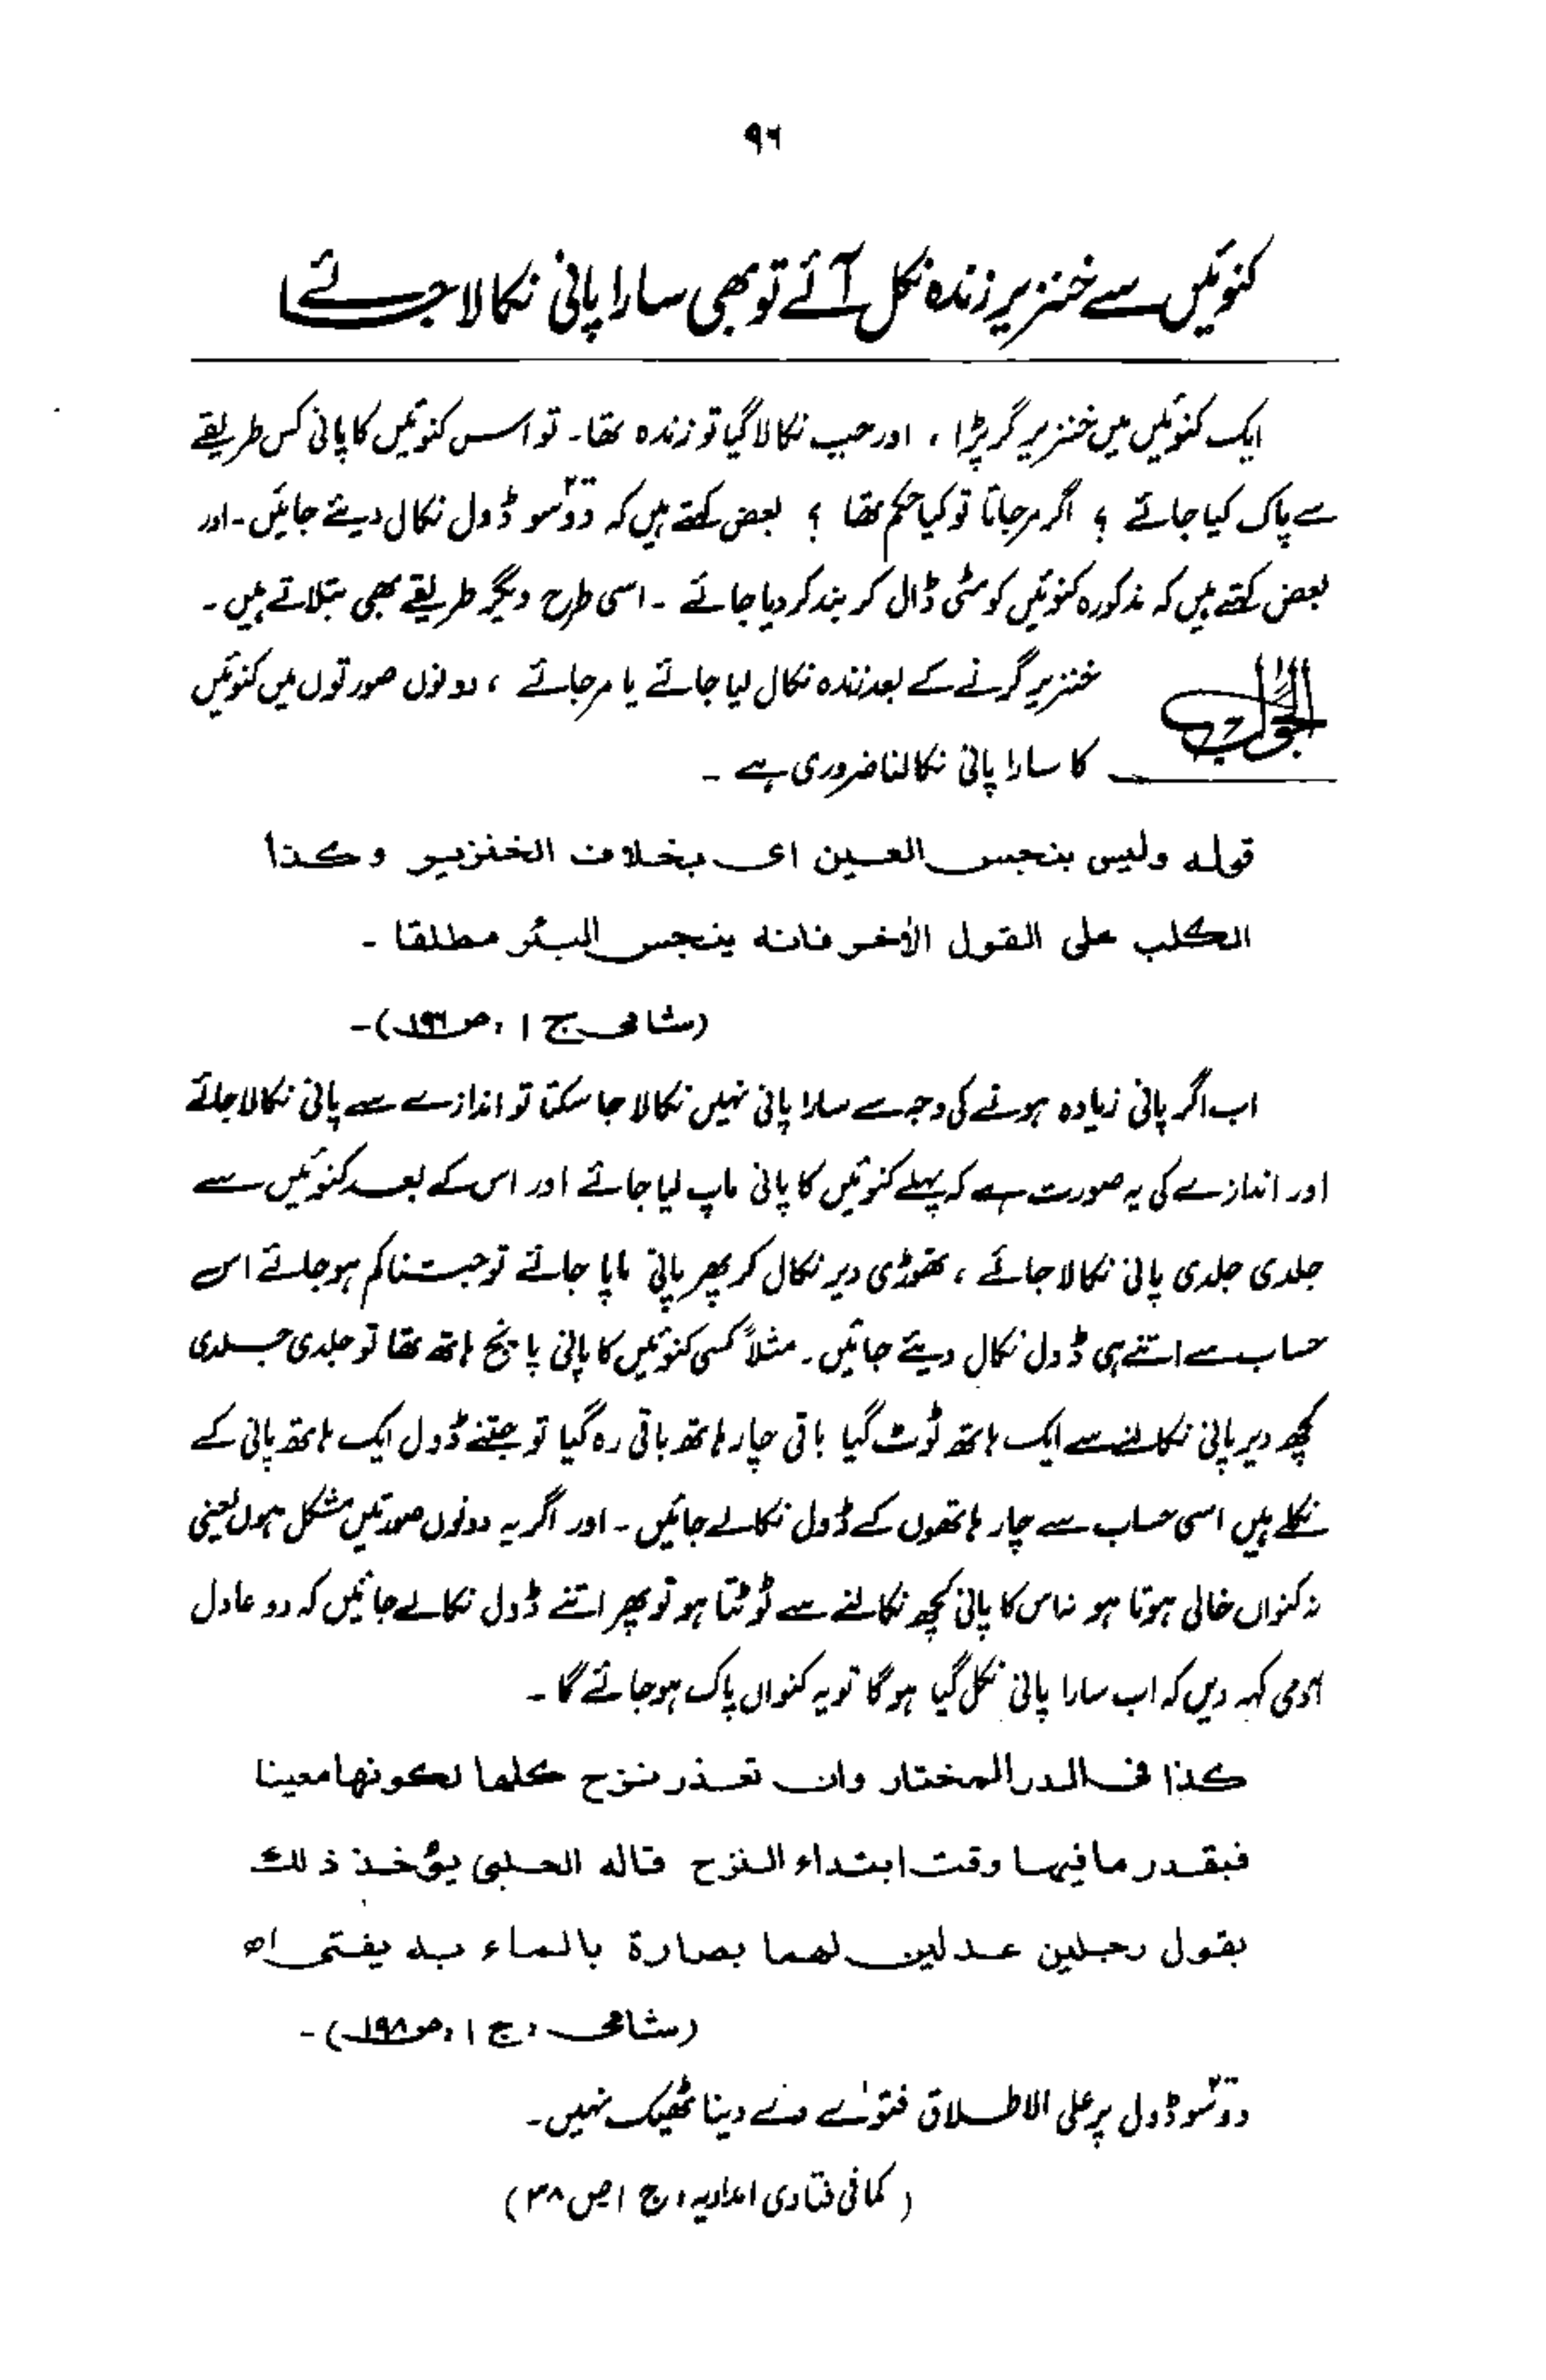 ۹۶
کنوئیں سے خنزیر زندہ نکل آئے تو بھی سارا پانی نکالا جائے
ایک کنوئیں میں خنزیر گر پڑا ، اور جب نکالا گیا تو زندہ تھا۔ تو اس کنوئیں کا پانی کس طریقے
سے پاک کیا جائے ؟ اگر مر جاتا تو کیا حکم تھا ؟ بعض کہتے ہیں کہ دو سو ڈول نکال دیئے جائیں۔ اور
بعض کہتے ہیں کہ مذکورہ کنوئیں کو مٹی ڈال کر بند کر دیا جائے ۔ اسی طرح دیگر طریقے بھی بتلاتے ہیں۔
الجواب خنزیر گرنے کے بعد زندہ نکال لیا جائے یا مر جائے ، دونوں صورتوں میں کنوئیں
کا سارا پانی نکالنا ضروری ہے ۔
قوله وليس بنجس العين اى بخلاف الخنزير وكذا
الكلب على القول الأخر فانه ينجس البئر مطلقا ۔
(شامی ج ۱ ، ص ۱۹۶)۔
اب اگر پانی زیادہ ہونے کی وجہ سے سارا پانی نہیں نکالا جا سکتا تو اندازے سے پانی نکالا جائے
اور اندازے کی یہ صورت ہے کہ پہلے کنوئیں کا پانی ماپ لیا جائے اور اس کے بعد کنوئیں سے
جلدی جلدی پانی نکالا جائے ، تھوڑی دیر نکال کر پھر پانی ماپا جائے تو جتنا کم ہو جائے اس
حساب سے اتنے ہی ڈول نکال دیئے جائیں۔ مثلاً کسی کنوئیں کا پانی پانچ ہاتھ تھا تو جلدی جلدی
کچھ دیر پانی نکالنے سے ایک ہاتھ ٹوٹ گیا باقی چار ہاتھ باقی رہ گیا تو جتنے ڈول ایک ہاتھ پانی کے
نکلے ہیں اسی حساب سے چار ہاتھوں کے ڈول نکالے جائیں ۔ اور اگر یہ دونوں صورتیں مشکل ہوں یعنی
نہ کنواں خالی ہوتا ہو نہ اس کا پانی کچھ نکالنے سے ٹوٹتا ہو تو پھر اتنے ڈول نکالے جائیں کہ دو عادل
آدمی کہہ دیں کہ اب سارا پانی نکل گیا ہو گا تو یہ کنواں پاک ہو جائے گا ۔
كذا فى الدر المختار وان تعذر نزح كلها لكونها معينا
فبقدر ما فيها وقت ابتداء النزح قاله الحلبى يؤخذ ذلك
بقول رجلين عدلين لهما بصارة بالماء به يفتى اھ
(شامی ، ج ۱ ، ص ۱۹۸)۔
دو سو ڈول پر علی الاطلاق فتوٰے دینا ٹھیک نہیں۔
(کما فی فتاوی امدادیہ ، ج ۱ ص ۳۸)